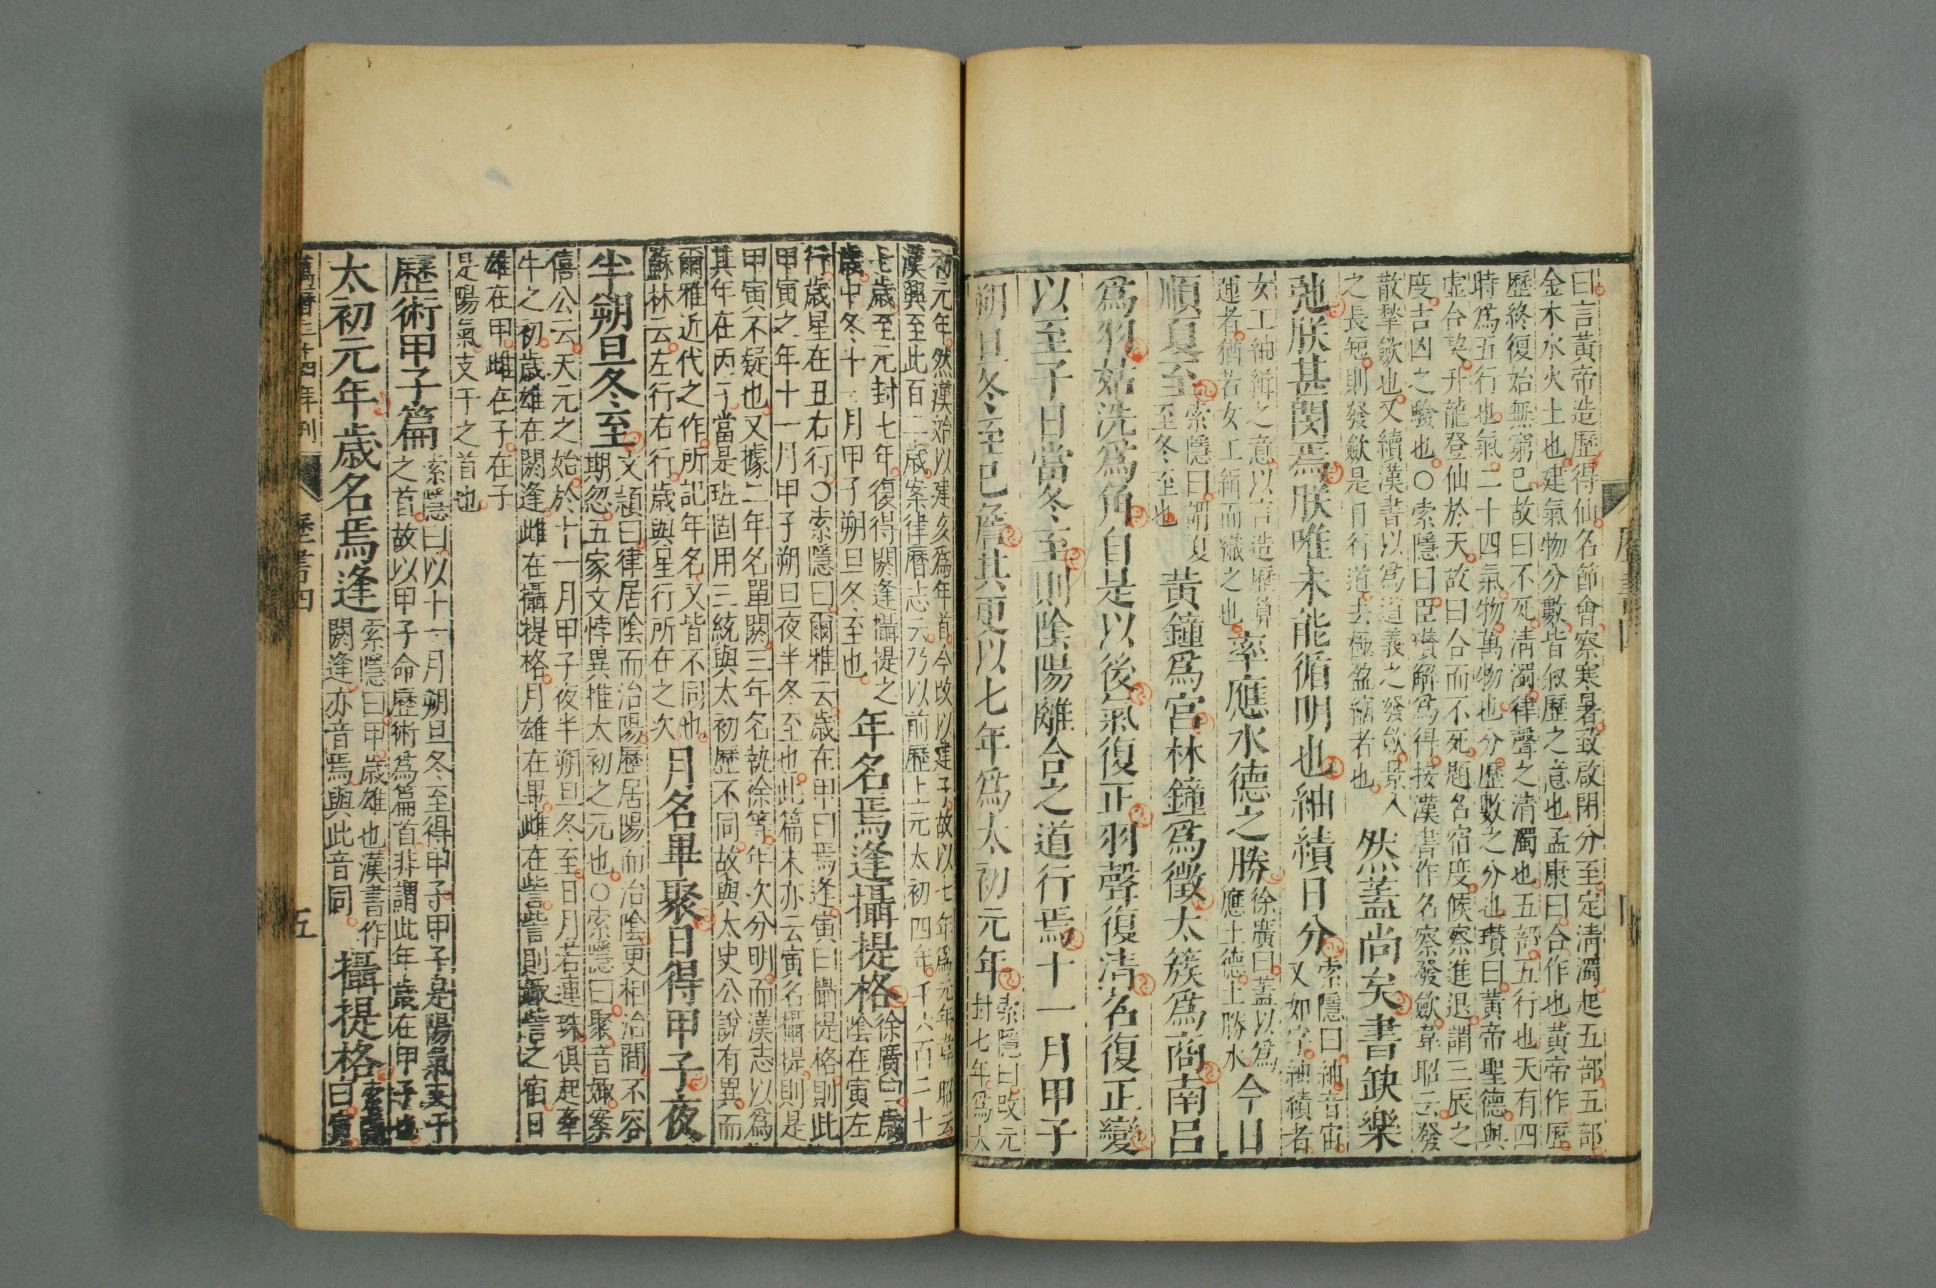 曰言黃帝造歷得仙名節會察寒暑致啟閉分至定清濁起五部五部
金木水火土也建氣物分數皆叙歷之意也孟康曰合作也黃帝作歷
歷終復始無窮已故曰不死清濁律聲之清濁也五部五行也天有四
時爲五行也氣二十四氣物萬物也分歷數之分也瓚曰黃帝聖德與
虛合契升龍登仙於天故曰合而不死題名宿度候察進退謂三辰之
度吉凶之驗也○索隱曰臣瓚解爲得按漢書作名察發斂韋昭云發
散挈斂也又續漢書以爲道義之發斂景入
之長短則發斂是日行道去極盈縮者也
然蓋尚矣書缺樂
弛朕甚閔焉朕唯未能循明也紬績日分
索隱曰紬音宙
又如字紬績者
女工紬緝之意以言造歷算
運者猶若女工緝而織之也
率應水德之勝
徐廣曰蓋以爲
應土德土勝水
今日
順夏至
索隱曰謂夏
至冬至也
黃鐘爲宮林鐘爲徵太簇爲商南呂
爲羽姑洗爲角自是以後氣復正羽聲復清名復正變
以至子日當冬至則陰陽離合之道行焉十一月甲子
朔旦冬至已詹其更以七年爲太初元年
索隱曰改元
封七年爲太
初元年然漢始以建亥爲年首今改以建子故以七年爲元年韋昭云
漢興至此百二歲案律曆志云乃以前歷上元太初四年千六百二十
七歲至元封七年復得閼逢攝提之
歲中冬十一月甲子朔旦冬至也
年名焉逢攝提格
徐廣曰歲
陰在寅左
行歲星在丑右行○索隱曰爾雅云歲在甲曰焉逢寅曰攝提格則此
甲寅之年十一月甲子朔旦夜半冬至也此篇末亦云寅名攝提則是
甲寅不疑也又據二年名單閼三年名執徐等年次分明而漢志以爲
其年在丙子當是班固用三統與太初歷不同故與太史公說有異而
爾雅近代之作所記年名又皆不同也
蘇林云左行右行歲與星行所在之次
月名畢聚日得甲子夜
半朔旦冬至
文穎曰律居陰而治陽歷居陽而治陰更相治間不容
期忽五家文悖異推太初之元也○索隱曰聚音娵案
僖公云天元之始於十一月甲子夜半朔旦冬至日月若連珠俱起牽
牛之初歲雄在閼逢雌在攝提格月雄在畢雌在訾訾則娵訾之宿日
雄在甲雌在子在子
是陽氣支干之首也
歷術甲子篇
索隱曰以十一月朔旦冬至得甲子甲子是陽氣支干
之首故以甲子命歷術爲篇首非謂此年歲在甲子也
太初元年歲名焉逢
索隱曰甲歲雄也漢書作
閼逢亦音焉與此音同
攝提格
索隱
曰寅
萬曆二十四年刊
歷書四
五